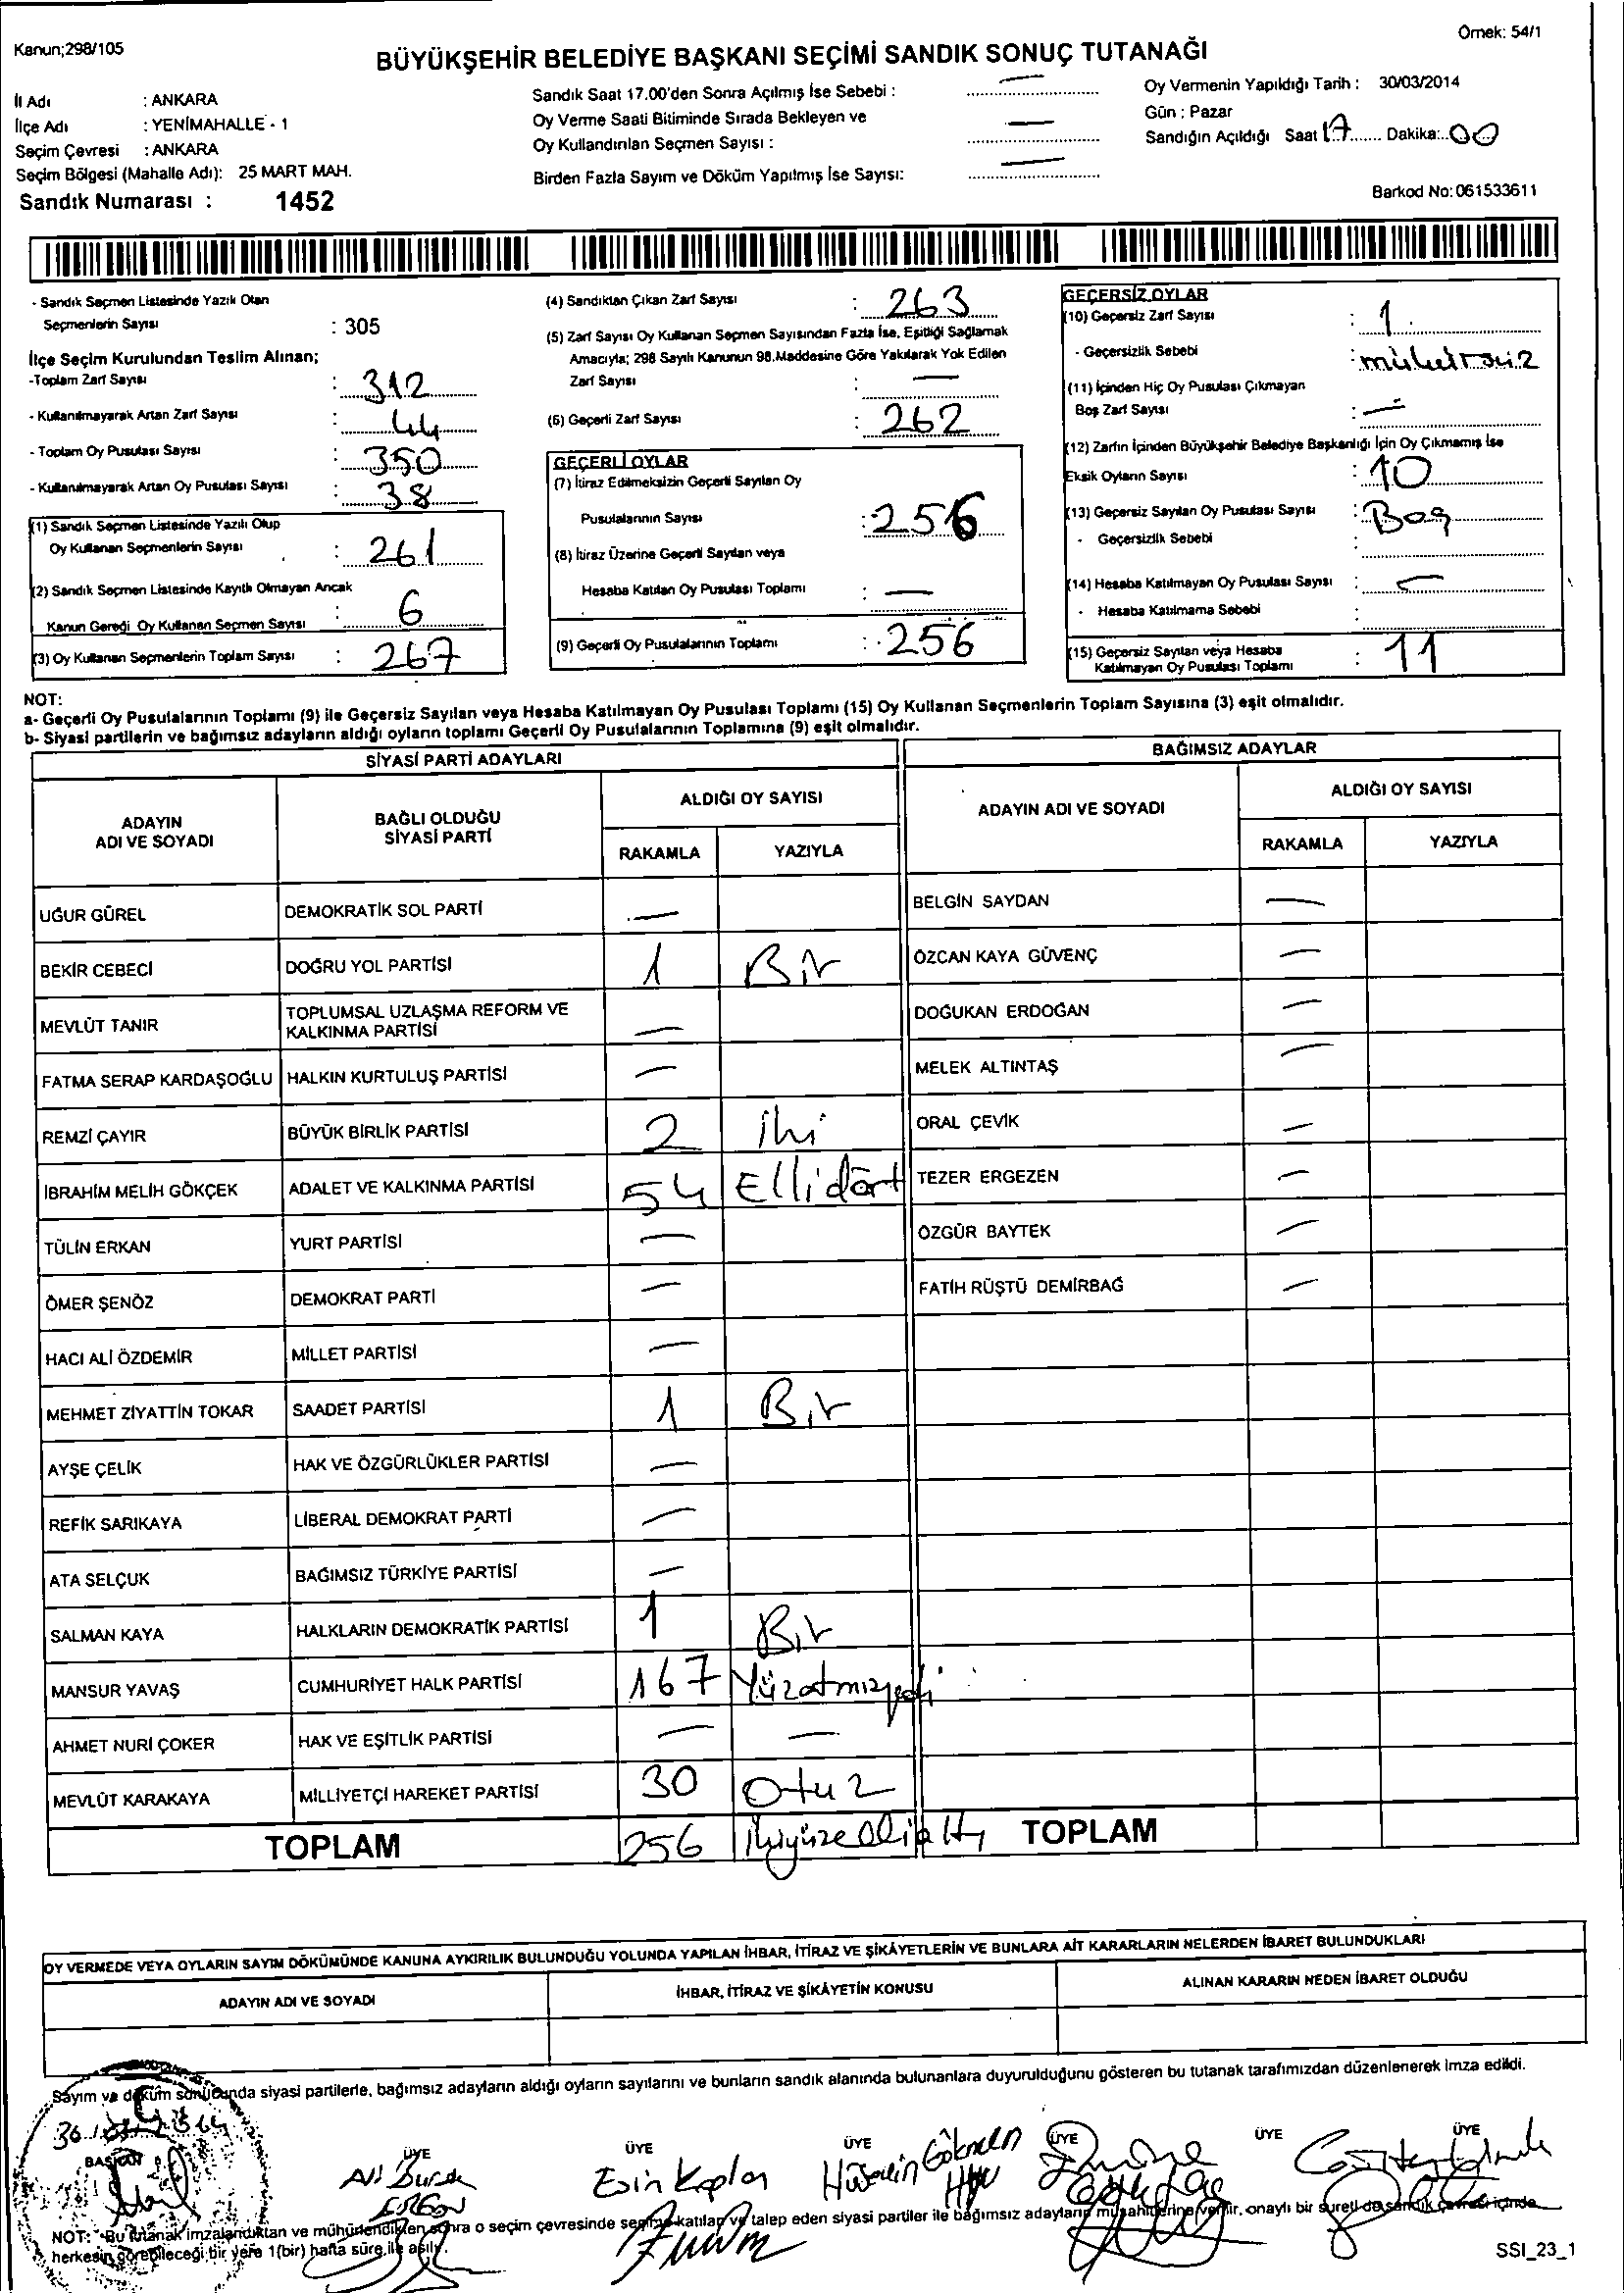 Kanun;298/105
Örnek: 54/1
BÜYÜKŞEHİR BELEDİYE BAŞKANI SEÇİMİ SANDIK SONUÇ TUTANAĞI
İl Adı : ANKARA
İlçe Adı : YENİMAHALLE - 1
Seçim Çevresi : ANKARA
Seçim Bölgesi (Mahalle Adı): 25 MART MAH.
Sandık Numarası : 1452
Sandık Saat 17.00'den Sonra Açılmış İse Sebebi : —
Oy Verme Saati Bitiminde Sırada Bekleyen ve
Oy Kullandırılan Seçmen Sayısı : —
Birden Fazla Sayım ve Döküm Yapılmış İse Sayısı: —
Oy Vermenin Yapıldığı Tarih : 30/03/2014
Gün : Pazar
Sandığın Açıldığı Saat 17 Dakika: 00
Barkod No: 061533611
- Sandık Seçmen Listesinde Yazılı Olan
Seçmenlerin Sayısı : 305
İlçe Seçim Kurulundan Teslim Alınan;
-Toplam Zarf Sayısı : 312
- Kullanılmayarak Artan Zarf Sayısı : 44
- Toplam Oy Pusulası Sayısı : 350
- Kullanılmayarak Artan Oy Pusulası Sayısı : 38
(1) Sandık Seçmen Listesinde Yazılı Olup
Oy Kullanan Seçmenlerin Sayısı : 261
(2) Sandık Seçmen Listesinde Kayıtlı Olmayan Ancak
Kanun Gereği Oy Kullanan Seçmen Sayısı : 6
(3) Oy Kullanan Seçmenlerin Toplam Sayısı : 267
(4) Sandıktan Çıkan Zarf Sayısı : 263
(5) Zarf Sayısı Oy Kullanan Seçmen Sayısından Fazla İse, Eşitliği Sağlamak
Amacıyla; 298 Sayılı Kanunun 98.Maddesine Göre Yakılarak Yok Edilen
Zarf Sayısı : —
(6) Geçerli Zarf Sayısı : 262
GEÇERLİ OYLAR
(7) İtiraz Edilmeksizin Geçerli Sayılan Oy
Pusulalarının Sayısı : 256
(8) İtiraz Üzerine Geçerli Sayılan veya
Hesaba Katılan Oy Pusulası Toplamı : —
(9) Geçerli Oy Pusulalarının Toplamı : 256
GEÇERSİZ OYLAR
(10) Geçersiz Zarf Sayısı : 1
- Geçersizlik Sebebi :
(11) İçinden Hiç Oy Pusulası Çıkmayan
Boş Zarf Sayısı : —
(12) Zarfın İçinden Büyükşehir Belediye Başkanlığı İçin Oy Çıkmamış İse
Eksik Oyların Sayısı : 10
(13) Geçersiz Sayılan Oy Pusulası Sayısı : Boş
- Geçersizlik Sebebi :
(14) Hesaba Katılmayan Oy Pusulası Sayısı : —
- Hesaba Katılmama Sebebi :
(15) Geçersiz Sayılan veya Hesaba
Katılmayan Oy Pusulası Toplamı : 11
NOT:
a- Geçerli Oy Pusulalarının Toplamı (9) ile Geçersiz Sayılan veya Hesaba Katılmayan Oy Pusulası Toplamı (15) Oy Kullanan Seçmenlerin Toplam Sayısına (3) eşit olmalıdır.
b- Siyasi partilerin ve bağımsız adayların aldığı oyların toplamı Geçerli Oy Pusulalarının Toplamına (9) eşit olmalıdır.
SİYASİ PARTİ ADAYLARI
ADAYIN
ADI VE SOYADI
BAĞLI OLDUĞU
SİYASİ PARTİ
ALDIĞI OY SAYISI
RAKAMLA YAZIYLA
UĞUR GÜREL DEMOKRATİK SOL PARTİ —
BEKİR CEBECİ DOĞRU YOL PARTİSİ 1 Bir
MEVLÜT TANIR TOPLUMSAL UZLAŞMA REFORM VE
KALKINMA PARTİSİ —
FATMA SERAP KARDAŞOĞLU HALKIN KURTULUŞ PARTİSİ —
REMZİ ÇAYIR BÜYÜK BİRLİK PARTİSİ 2 iki
İBRAHİM MELİH GÖKÇEK ADALET VE KALKINMA PARTİSİ 54 Ellidört
TÜLİN ERKAN YURT PARTİSİ —
ÖMER ŞENÖZ DEMOKRAT PARTİ —
HACI ALİ ÖZDEMİR MİLLET PARTİSİ —
MEHMET ZİYATTİN TOKAR SAADET PARTİSİ 1 Bir
AYŞE ÇELİK HAK VE ÖZGÜRLÜKLER PARTİSİ —
REFİK SARIKAYA LİBERAL DEMOKRAT PARTİ —
ATA SELÇUK BAĞIMSIZ TÜRKİYE PARTİSİ —
SALMAN KAYA HALKLARIN DEMOKRATİK PARTİSİ 1 Bir
MANSUR YAVAŞ CUMHURİYET HALK PARTİSİ 167 Yüzatmışyedi
AHMET NURİ ÇOKER HAK VE EŞİTLİK PARTİSİ — —
MEVLÜT KARAKAYA MİLLİYETÇİ HAREKET PARTİSİ 30 otuz
TOPLAM 256 ikiyüzellialtı
BAĞIMSIZ ADAYLAR
ADAYIN ADI VE SOYADI
ALDIĞI OY SAYISI
RAKAMLA YAZIYLA
BELGİN SAYDAN —
ÖZCAN KAYA GÜVENÇ —
DOĞUKAN ERDOĞAN —
MELEK ALTINTAŞ —
ORAL ÇEVİK —
TEZER ERGEZEN —
ÖZGÜR BAYTEK —
FATİH RÜŞTÜ DEMİRBAĞ —
TOPLAM
OY VERMEDE VEYA OYLARIN SAYIM DÖKÜMÜNDE KANUNA AYKIRILIK BULUNDUĞU YOLUNDA YAPILAN İHBAR, İTİRAZ VE ŞİKÂYETLERİN VE BUNLARA AİT KARARLARIN NELERDEN İBARET BULUNDUKLARI
ADAYIN ADI VE SOYADI
İHBAR, İTİRAZ VE ŞİKÂYETİN KONUSU
ALINAN KARARIN NEDEN İBARET OLDUĞU
Sayım ve döküm sonucunda siyasi partilerle, bağımsız adayların aldığı oyların sayılarını ve bunların sandık alanında bulunanlara duyurulduğunu gösteren bu tutanak tarafımızdan düzenlenerek imza edildi.
BAŞKAN ÜYE ÜYE ÜYE ÜYE ÜYE ÜYE
Ali Burak Esin Kaplan Hüseyin Gökmen
NOT: Bu tutanak imzalandıktan ve mühürlendikten sonra o seçim çevresinde seçime katılan ve talep eden siyasi partiler ile bağımsız adayların müşahitlerine verilir, onaylı bir sureti de sandık çevresi içinde
herkesin görebileceği bir yere 1(bir) hafta süre ile asılır.
SSI_23_1